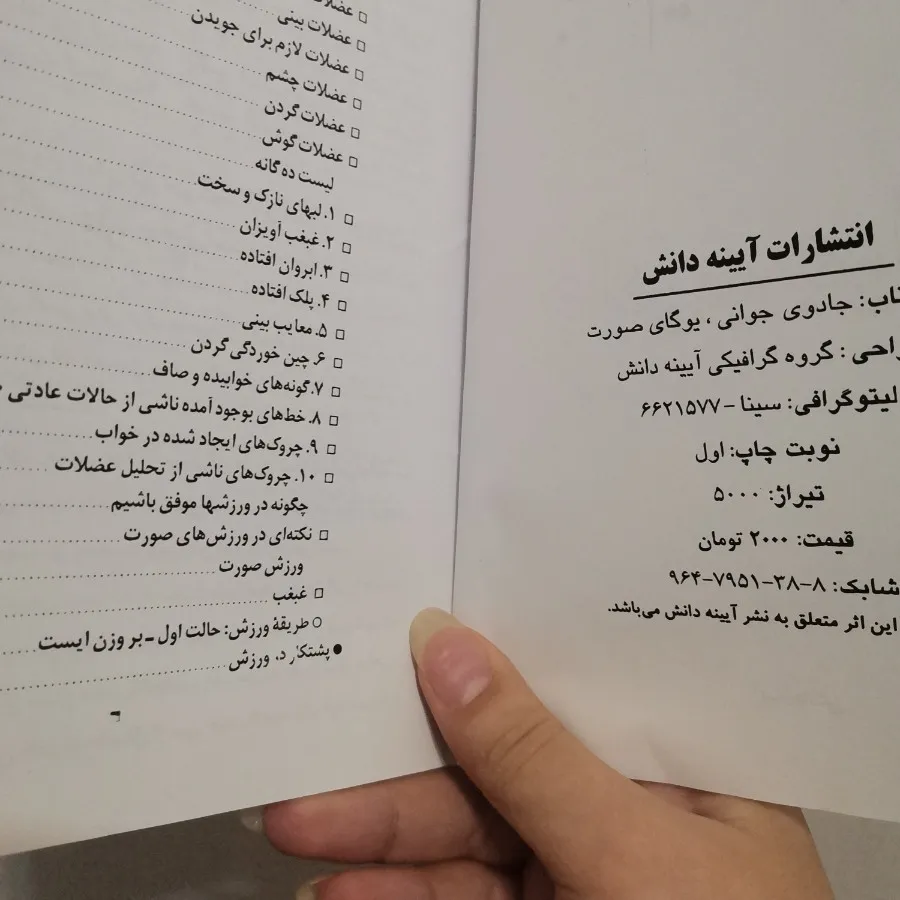 انتشارات آیینه دانش
جادوی جوانی ، یوگای صورت
گروه گرافیکی آیینه دانش
لیتوگرافی: سینا - ۶۶۲۱۵۷۷
نوبت چاپ: اول
تیراژ: ۵۰۰۰
قیمت: ۲۰۰۰ تومان
شابک: ۸-۳۸-۷۹۵۱-۹۶۴
این اثر متعلق به نشر آیینه دانش می‌باشد.
عضلات بینی
عضلات لازم برای جویدن
عضلات چشم
عضلات گردن
عضلات گوش
لیست ده گانه
۱. لبهای نازک و سخت
۲. غبغب آویزان
۳. ابروان افتاده
۴. پلک افتاده
۵. معایب بینی
۶. چین خوردگی گردن
۷. گونه‌های خوابیده و صاف
۸. خط‌های بوجود آمده ناشی از حالات عادتی
۹. چروک‌های ایجاد شده در خواب
۱۰. چروک‌های ناشی از تحلیل عضلات
چگونه در ورزشها موفق باشیم
نکته‌ای در ورزش‌های صورت
ورزش صورت
غبغب
طریقهٔ ورزش: حالت اول - بر وزن ایست
پشتکار در ورزش